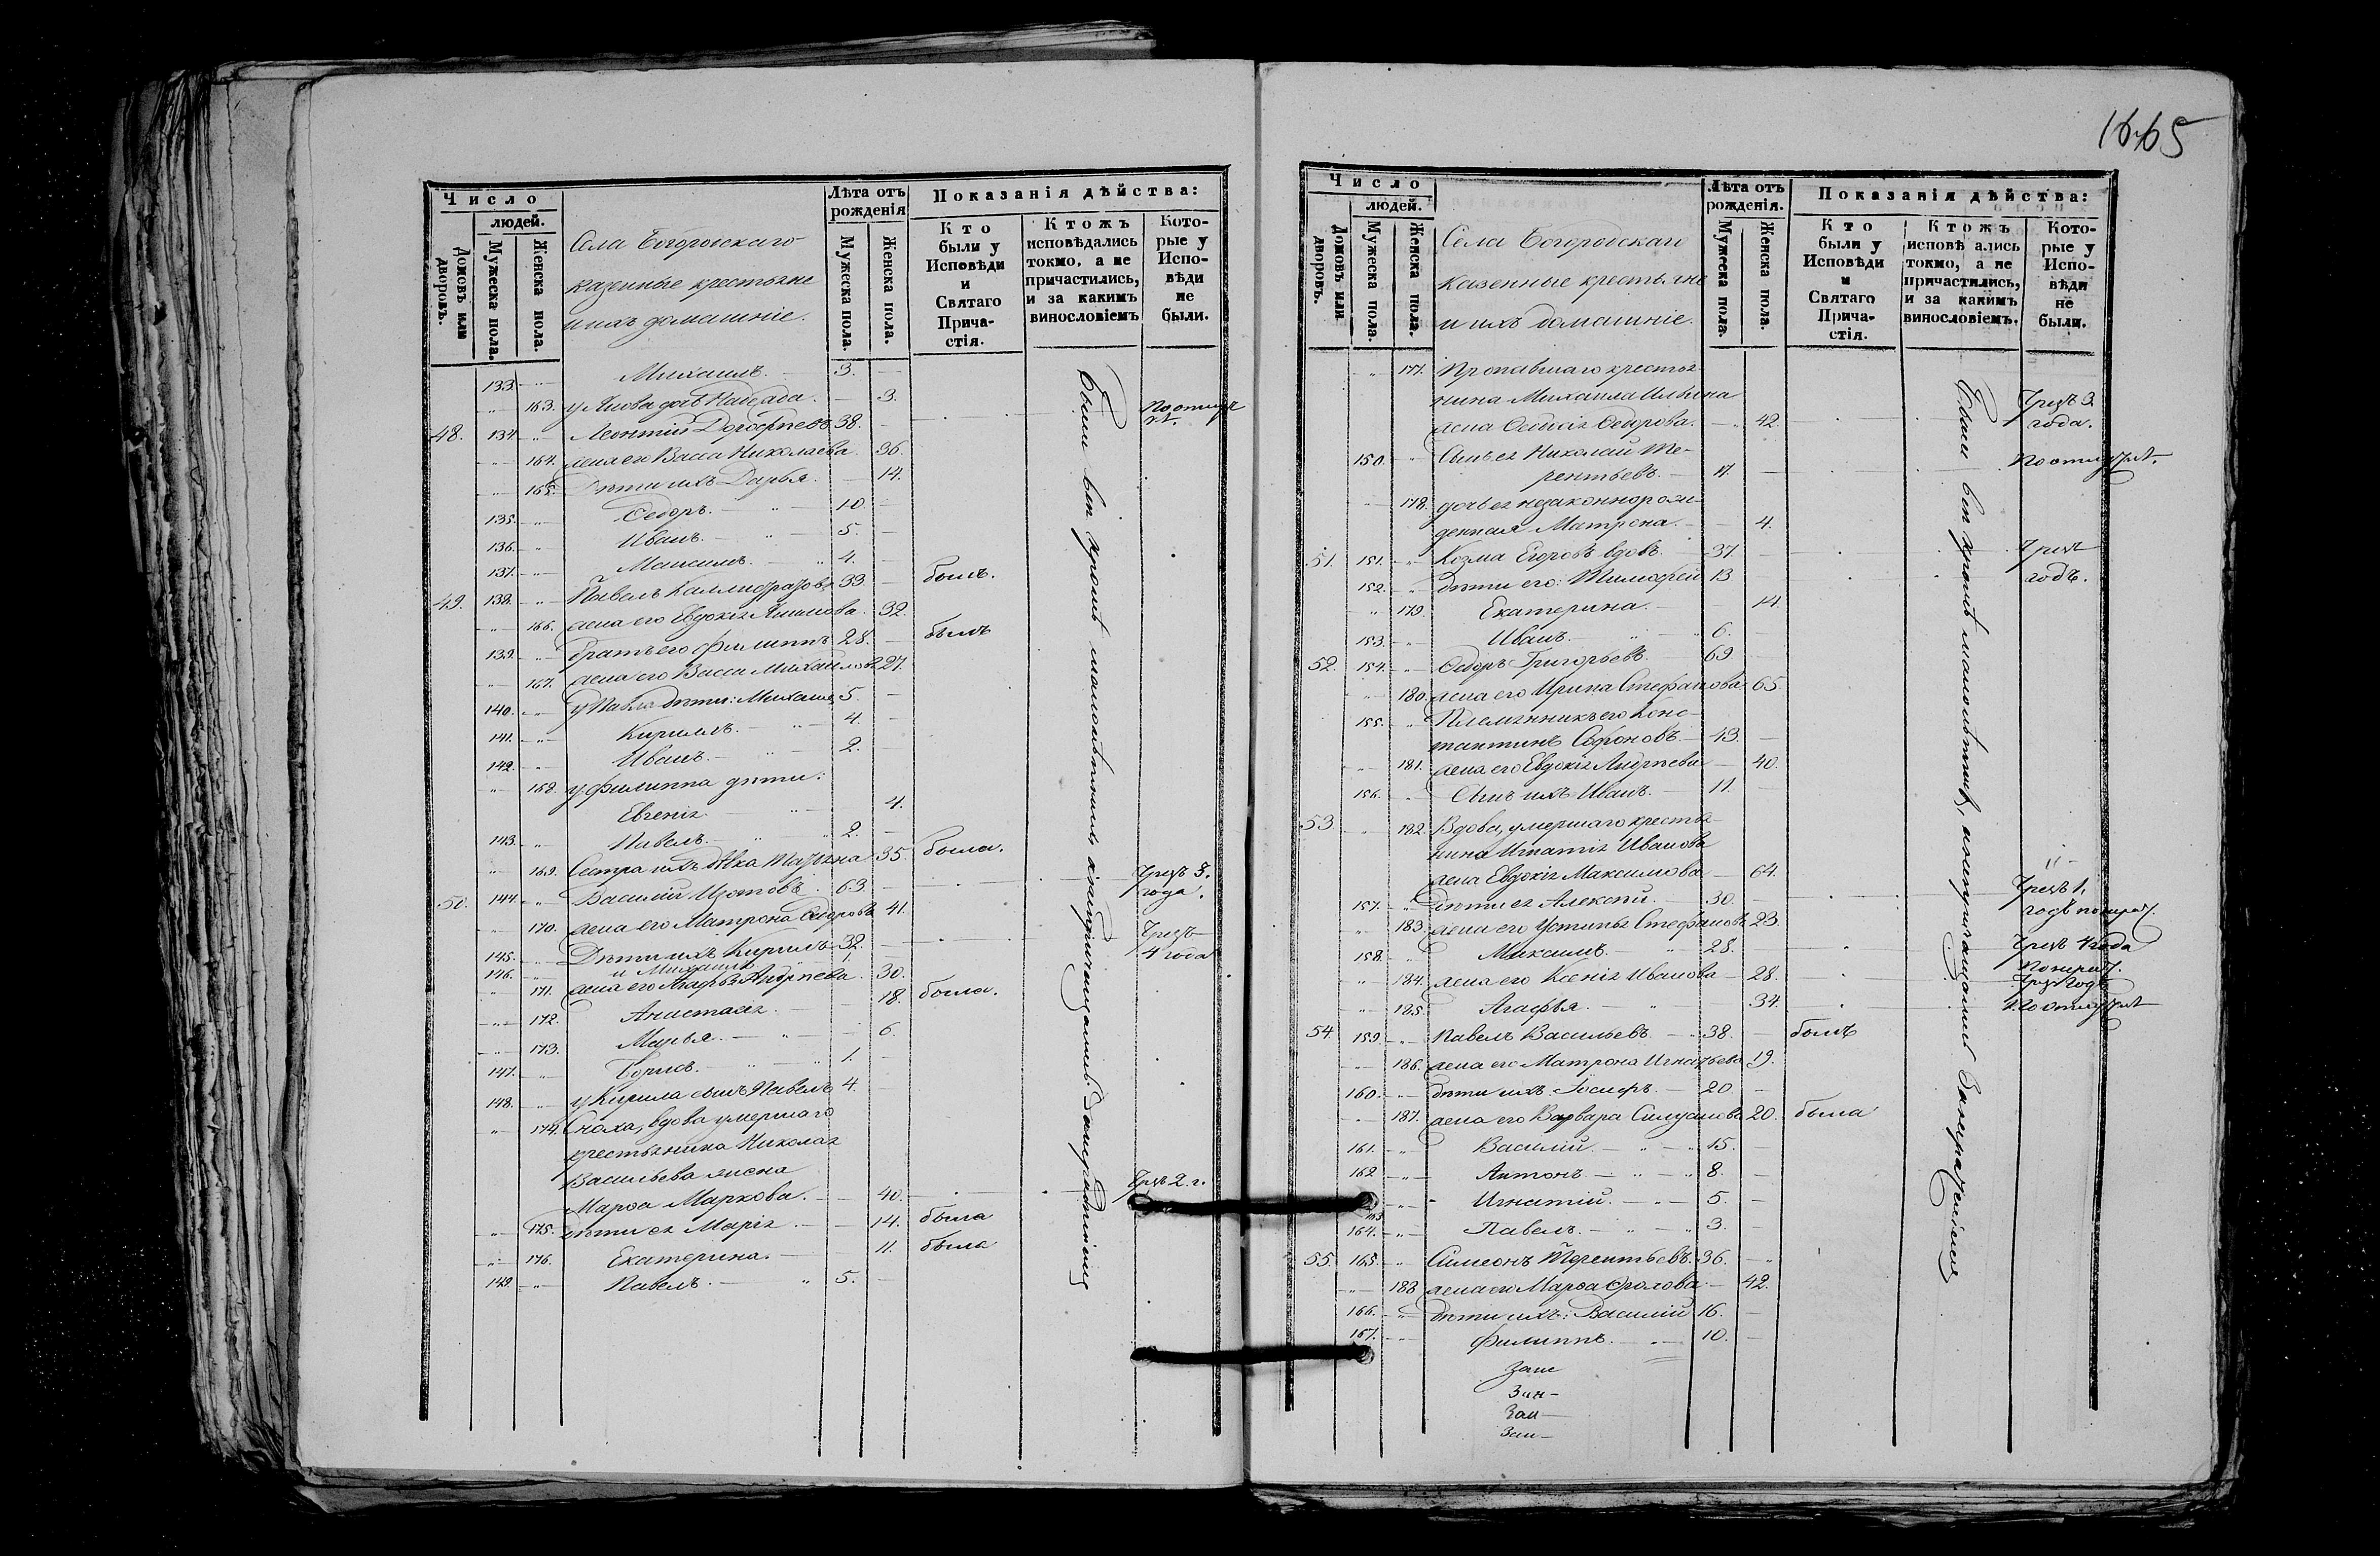 1665
Число
людей.
Домовъ или дворовъ.
Мужеска пола.
Женска пола.
Села Богородскаго
казенные крестьяне
и ихъ домашніе.
Лѣта отъ рожденія
Мужеска пола.
Женска пола.
Показанія дѣйства:
Кто были у Исповѣди и Святаго Прича-стія.
Ктожъ исповѣдались токмо, а не причастились, и за какимъ винословіемъ
Кото-рые у Испо-вѣди не были.
133. Михаилъ. 3.
163. у Якова дочь Надежда. 3.
48. 134. Леонтій Дорофѣевъ 38.
164. жена его Васса Николаева 36.
165. Дѣти ихъ Дарья. 14.
135. Ѳедоръ. 10.
136. Иванъ. 5.
137. Максимъ. 4.
49. 138. Павелъ Каллистратовъ 33 былъ.
166. жена его Евдокія 32.
139. братъ его Филиппъ 28. былъ
167. жена его Васса Михайлова 27.
140. у Павла дѣти: Михаилъ 5.
141. Кириллъ. 4.
142. Иванъ. 2.
168. у Филиппа дѣти:
Евгенія. 4.
143. Павелъ. 2.
169. Сестра ихъ дѣвка Татьяна 35. была.
50. 144. Василій Изотовъ. 63. Чрезъ 3. года.
170. жена его Матрона 41.
145. Дѣти ихъ Кирилъ 32. Чрезъ 4 года
146. и Михаилъ 1.
171. жена его Агафья Андрѣева. 30.
172. Анастасія. 18. была.
173. Марья. 6.
147. Борисъ. 1.
148. у Кирила сынъ Павелъ 4.
174. Сноха, вдова умершаго
крестьянина Николая
Васильева жена
Марѳа Маркова. 40. Чрезъ 2. г.
175. дѣти ея Марія. 14. была
176. Екатерина. 11. была
149. Павелъ. 5.
Были всѣ кромѣ малолѣтнихъ
Число
людей.
Домовъ или дворовъ.
Мужеска пола.
Женска пола.
Села Богородскаго
казенные крестьяне
и ихъ домашніе.
Лѣта отъ рожденія.
Мужеска пола.
Женска пола.
Показанія дѣйства:
Кто были у Исповѣди и Святаго Прича-стія.
Ктожъ исповѣ ались токмо, а не причастились, и за какимъ винословіемъ.
Кото-рые у Испо-вѣди не были.
177. Пропавшаго крестья-
нина Михаила Ильина
жена Ѳедосія Ѳедорова. 42. Чрезъ 3. года.
150. Сынъ ея Николай Те-
рентьевъ. 17.
178. дочь ея незаконнорож-
денная Матрона. 4.
51. 151. Козма Егоровъ вдовъ. 37. Чрезъ годъ.
152. дѣти его: Тимофей 13
179. Екатерина. 14.
153. Иванъ. 6.
52. 154. Ѳедоръ Григорьевъ. 69
180. жена его Ирина Стефанова 65.
155. Племянникъ его Конс-
тантинъ Софоновъ. 43.
181. жена его Евдокія Андрѣева 40.
156. Сынъ ихъ Иванъ. 11.
53. 182. Вдова, умершаго крестья-
нина Игнатія Иванова
жена Евдокія Максимова 64.
157. дѣти ея Алексѣй. 30. Чрезъ 1. годъ
183. жена его Устинья Стефанова 23.
158. Михаилъ. 28. Чрезъ 4 года
184. жена его Ксенія Иванова 28. Чрезъ годъ
185. Агафья. 34.
54. 159. Павелъ Васильевъ. 38. былъ
186. жена его Матрона Игнатьева 19.
160. дѣти ихъ Іосифъ. 20.
187. жена его Варвара Силуанова 20. была
161. Василій. 15.
162 Антонъ. 8.
163 Игнатій. 5.
164. Павелъ. 3.
55. 165. Симеонъ Терентьевъ. 36.
188 жена его Марѳа Фролова 42.
166. дѣти ихъ: Василій 16.
167. Филиппъ. 10.
Были всѣ кромѣ малолѣтнихъ